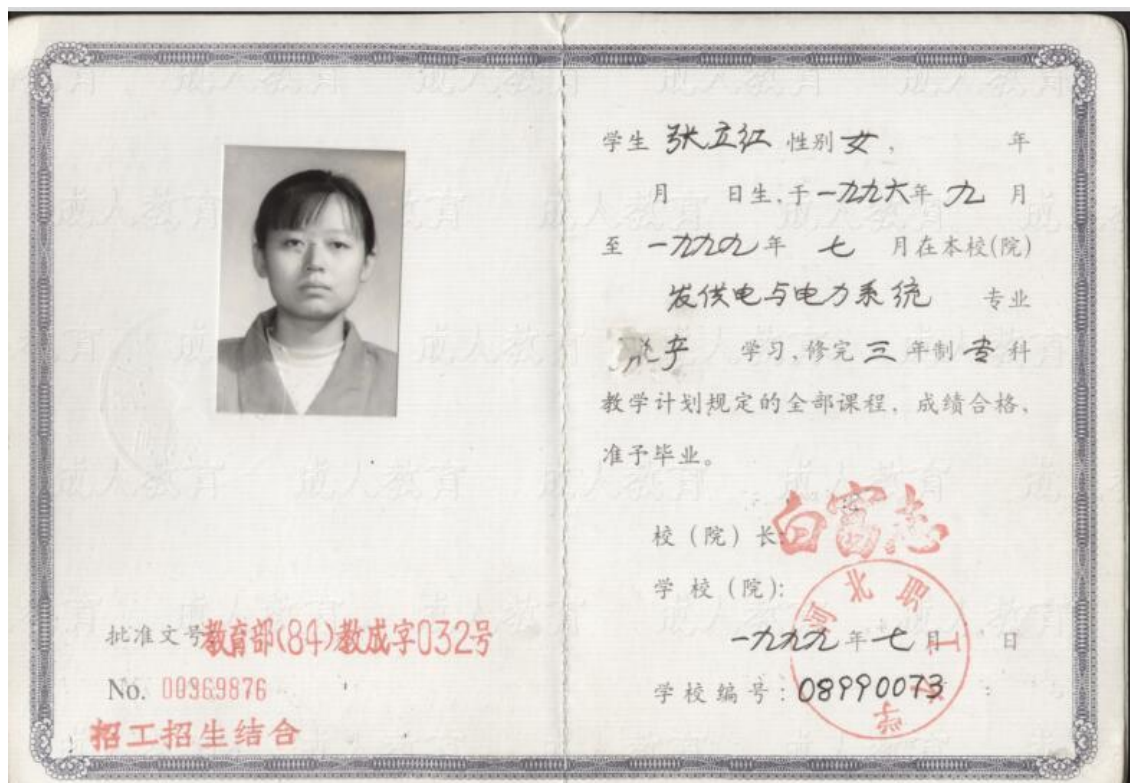 批准文号教育部(84)教成字032号
No. 00969876
招工招生结合
学生 张立红 性别 女, 年
月 日生,于一九九六年 九 月
至 一九九九年 七 月在本校(院)
发供电与电力系统 专业
脱产 学习,修完 三 年制 专 科
教学计划规定的全部课程,成绩合格,
准予毕业。
校(院)长: 白富志
学校(院):
一九九九年七月 日
学校编号:08990073
河北职工大学
成人教育